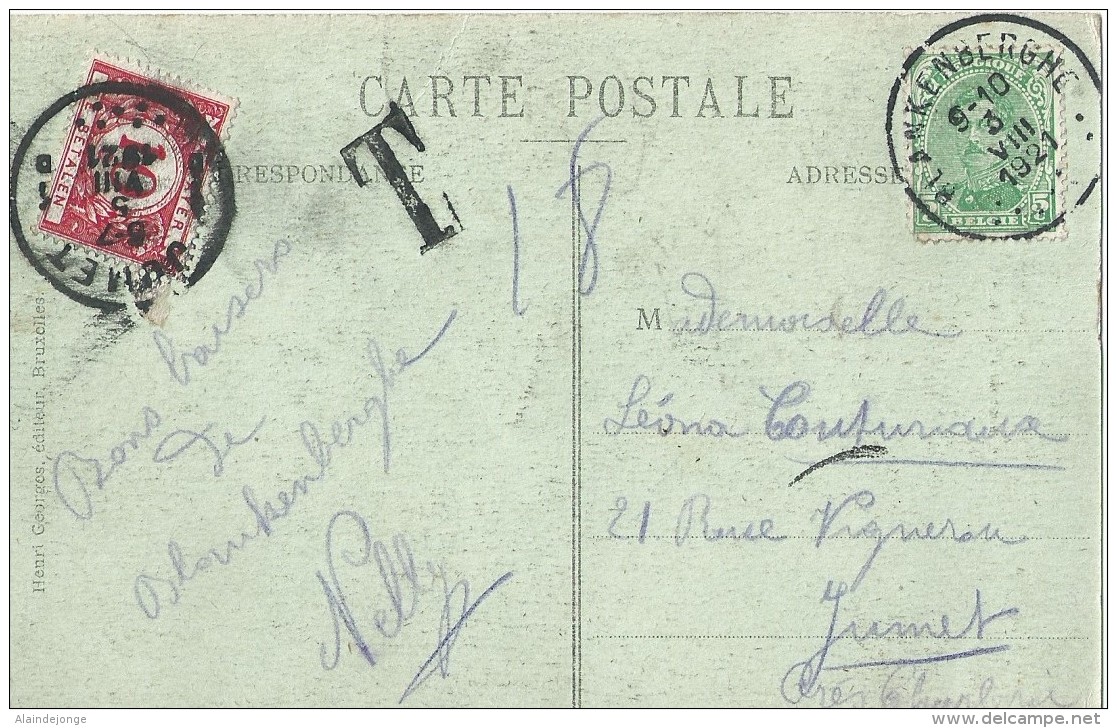 CARTE POSTALE
CORRESPONDANCE
ADRESSE
T
18
BLANKENBERGHE
9-10
3
VIII
1921
BELGIE
5
JUMET
6-7
5
VIII
1921
10
BETALEN
Bons baisers
de
Blankenberghe
Nelly
Mademoiselle
Léona Couturiaux
21 Rue Vigneron
Jumet
Près
Henri Georges, éditeur, Bruxelles.
Alaindejonge
delcampe.net